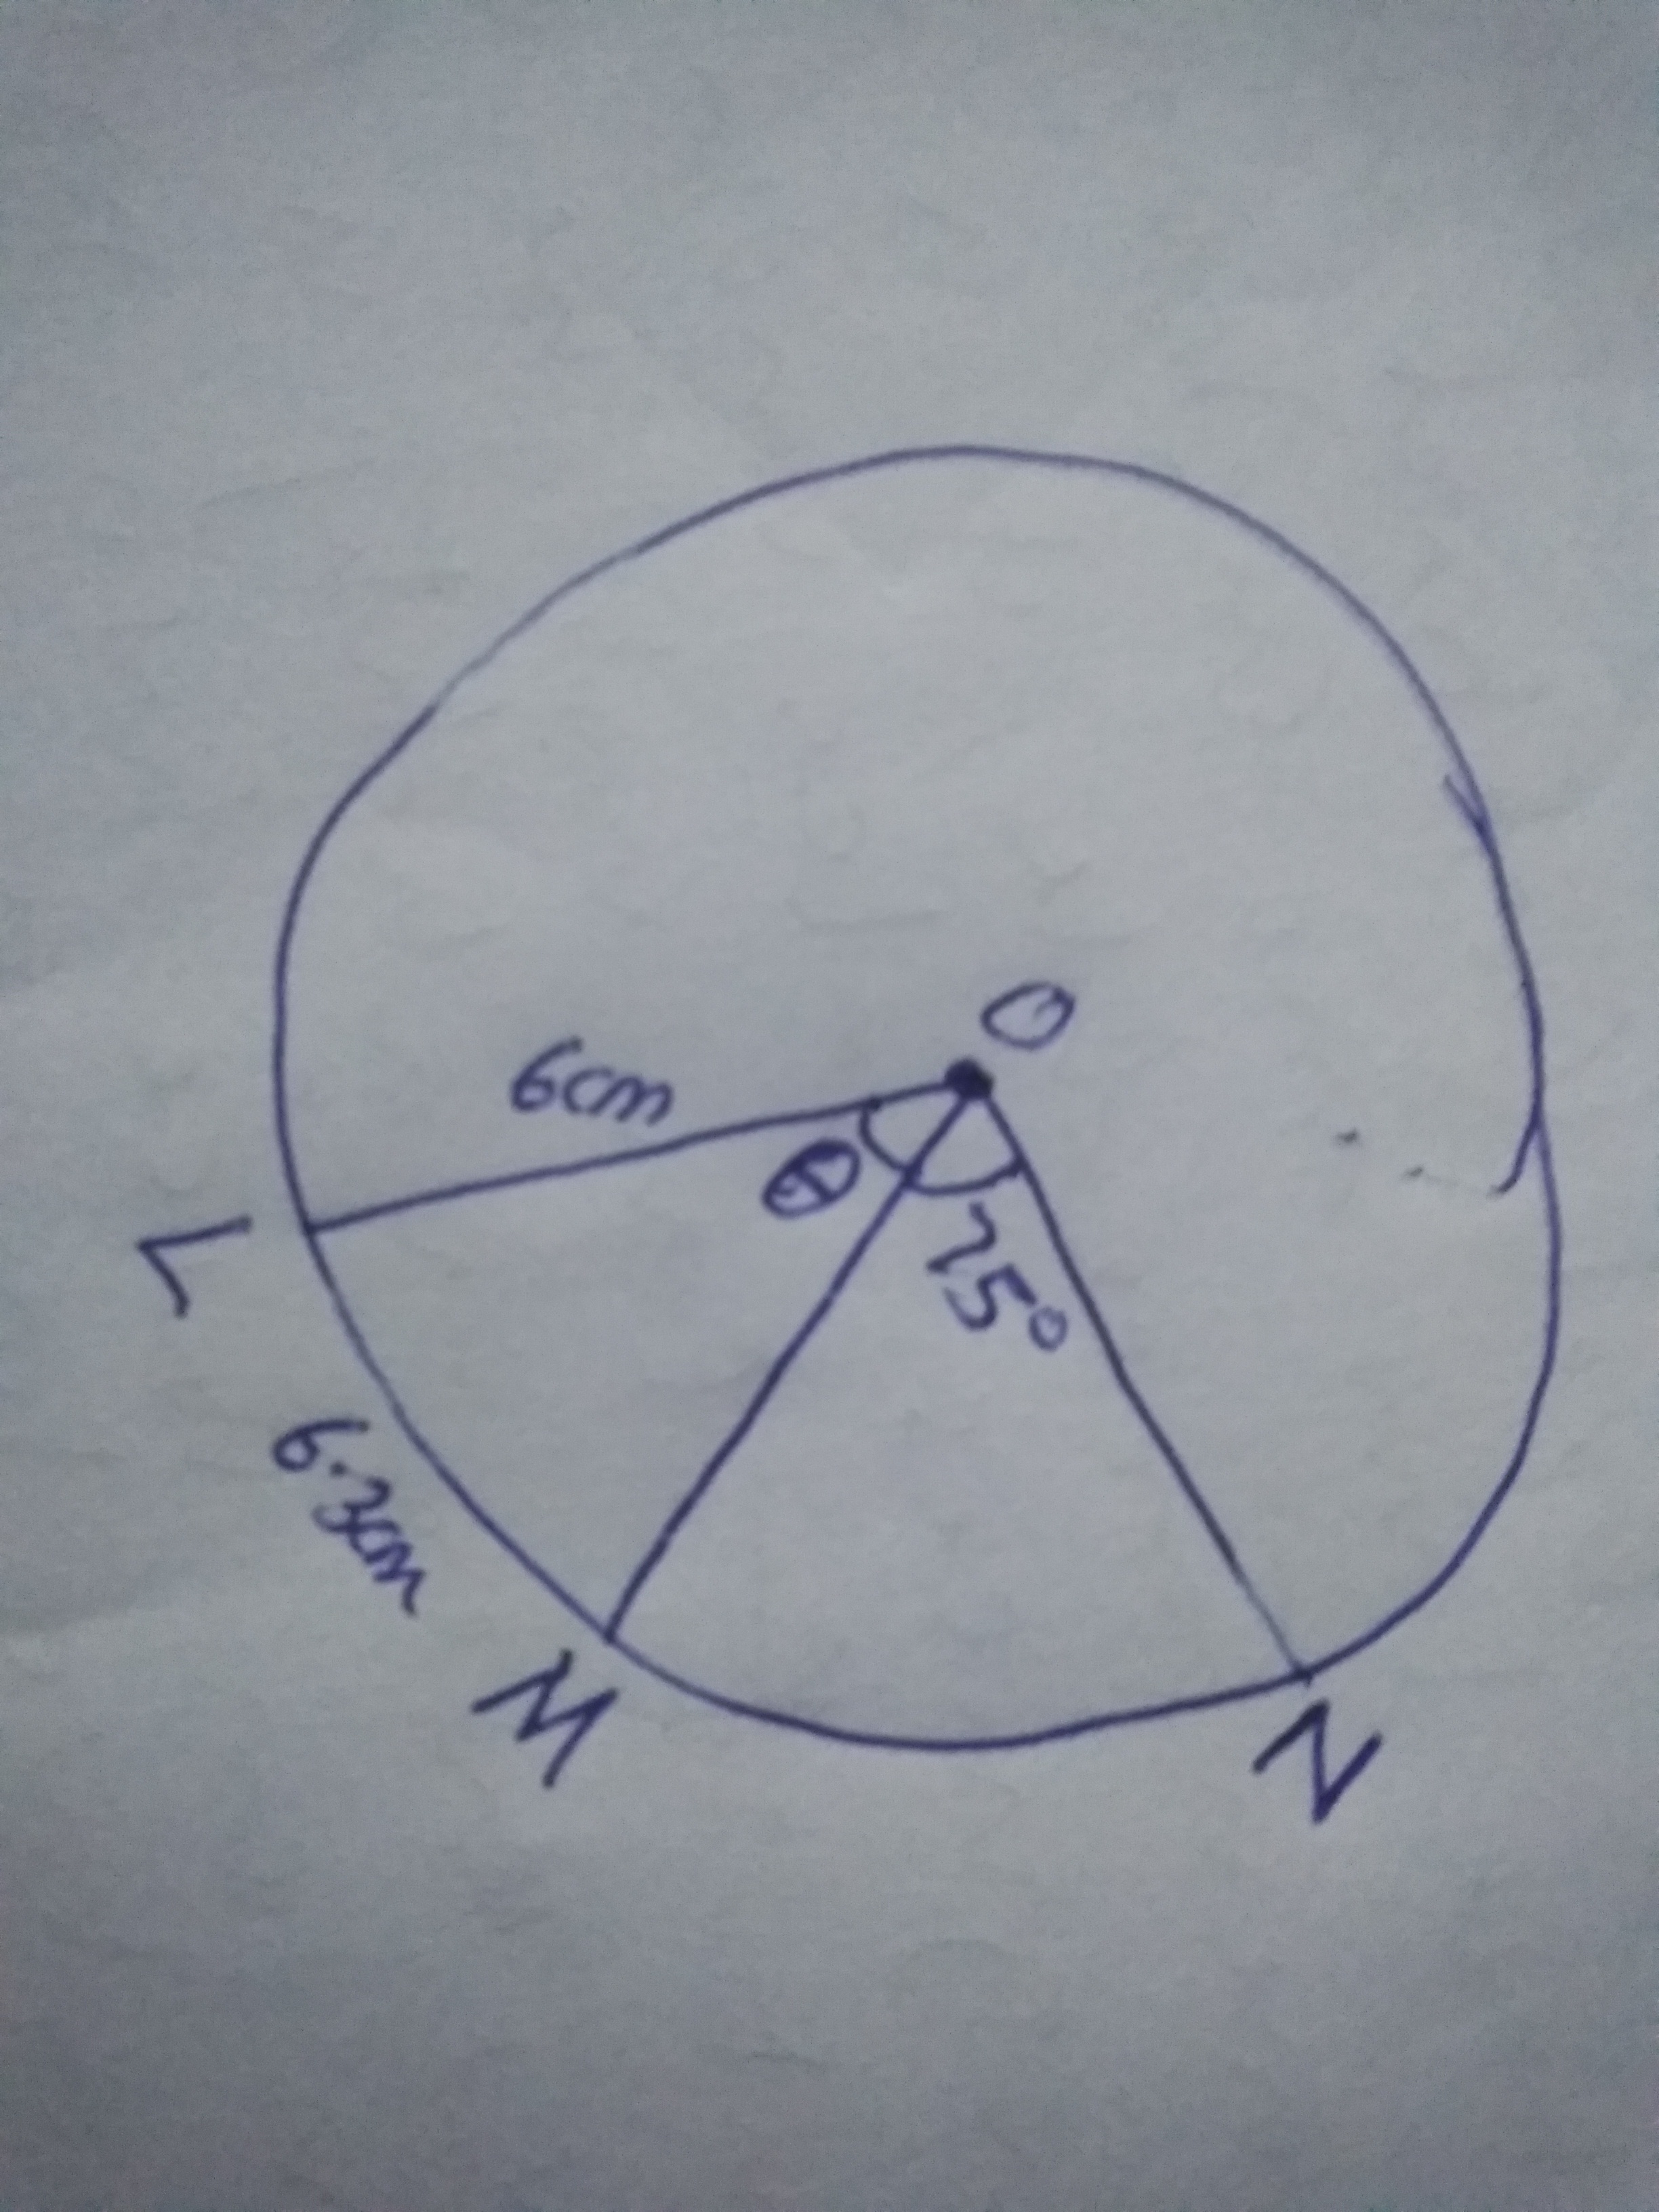 O
6cm
θ
75°
L
6.3cm
M
N